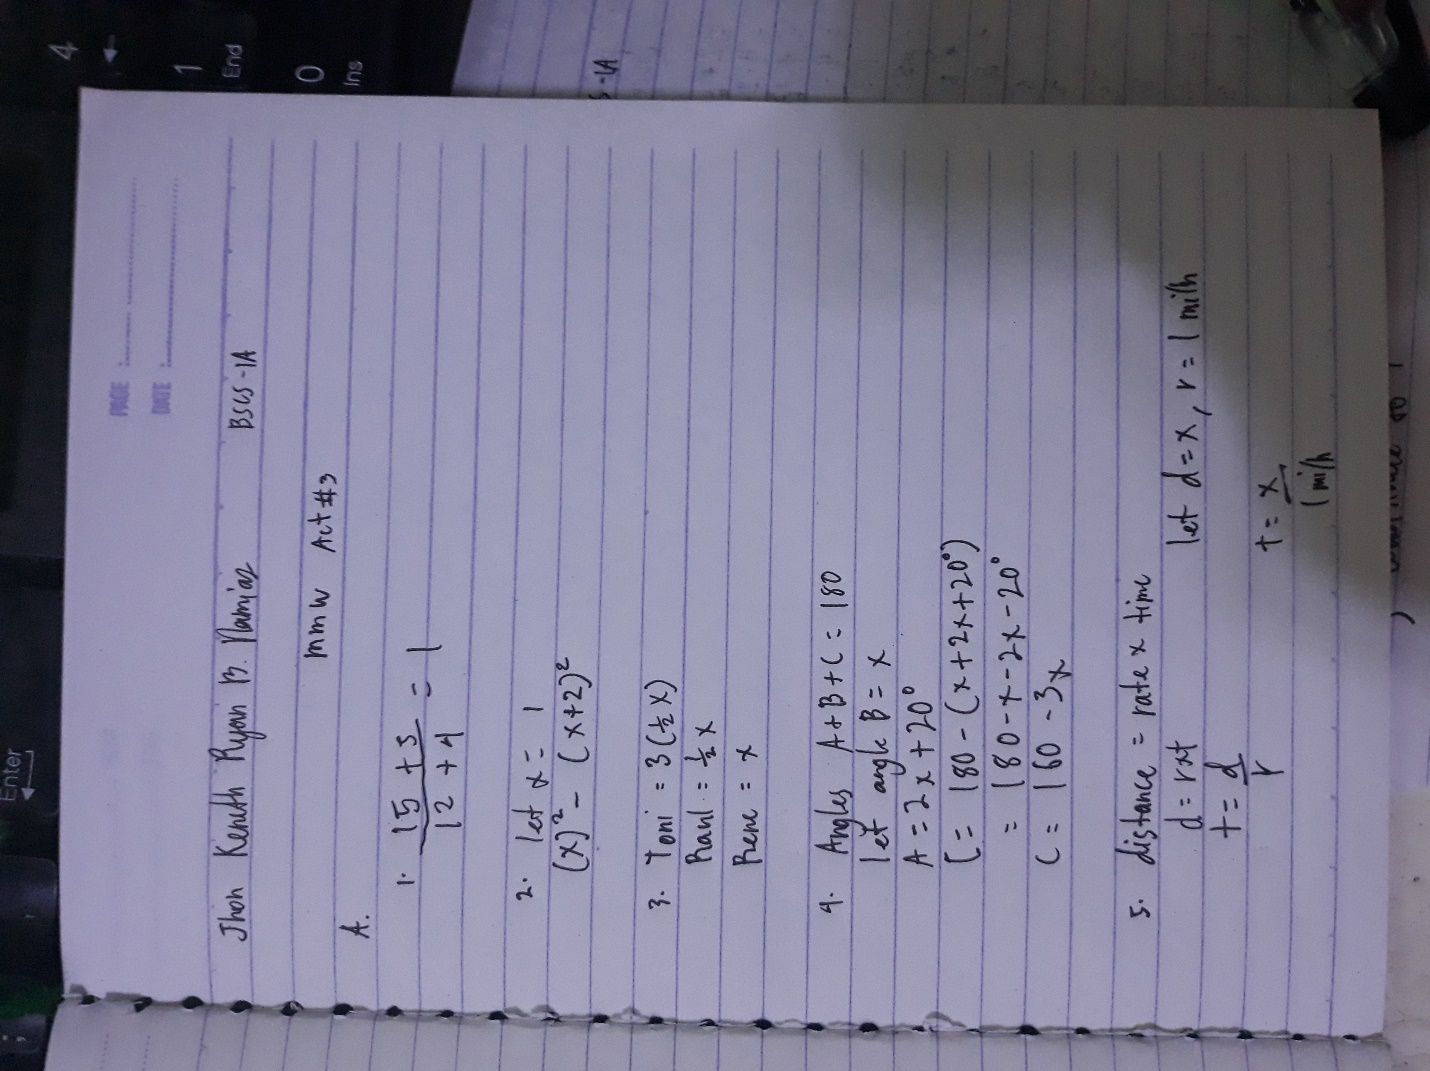 PAGE :
DATE :
Jhon Kenneth Ryan B. Namias BSCS-1A
mmw Act #3
A.
1. 15 + 3 / 12 + 4 = 1
2. let x = 1
(x)² - (x+2)²
3. Toni = 3(½x)
Raul = ½ x
Rene = x
4. Angles A+B+C = 180
let angle B = x
A = 2x + 20°
C = 180 - (x+2x+20°)
= 180 - x - 2x - 20°
C = 160 - 3x
5. distance = rate x time
d = rxt let d = x, r = 1 mi/h
t = d / r
t = x / 1 mi/h
Enter
4
1
End
0
Ins
S-1A